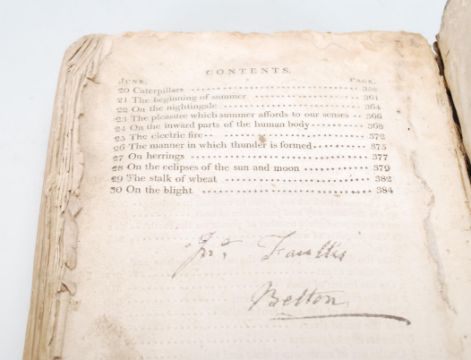 CONTENTS.
JUNE. PAGE.
20 Caterpillars 358
21 The beginning of summer 361
22 On the nightingale 364
23 The pleasure which summer affords to our senses 366
24 On the inward parts of the human body 368
25 The electric fire 372
26 The manner in which thunder is formed 375
27 On herrings 377
28 On the eclipses of the sun and moon 379
29 The stalk of wheat 382
30 On the blight 384
Jno. Faullis
Belton